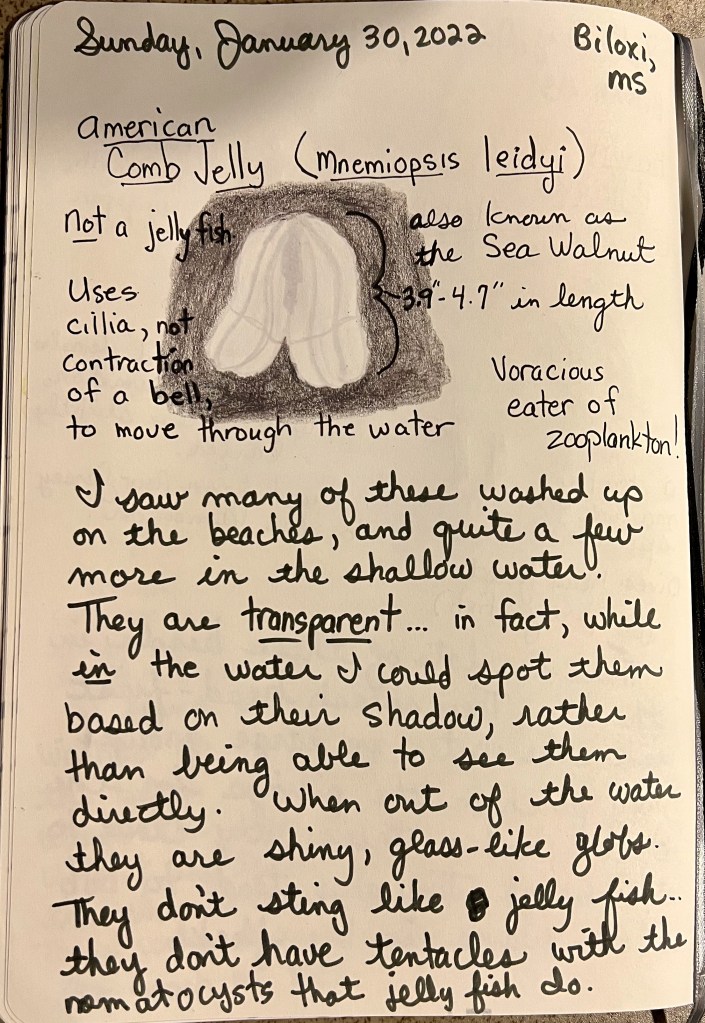 Sunday, January 30, 2022
Biloxi,
MS
American
Comb Jelly (Mnemiopsis leidyi)
Not a jelly fish.
also known as
the Sea Walnut
3.9"-4.7" in length
Uses
cillia, not
contraction
of a bell,
to move through the water
Voracious
eater of
zooplankton!
I saw many of these washed up
on the beaches, and quite a few
more in the shallow water.
They are transparent... in fact, while
in the water I could spot them
based on their shadow, rather
than being able to see them
directly. When out of the water
they are shiny, glass-like globs.
They don't sting like jelly fish...
they don't have tentacles with the
nematocysts that jelly fish do.